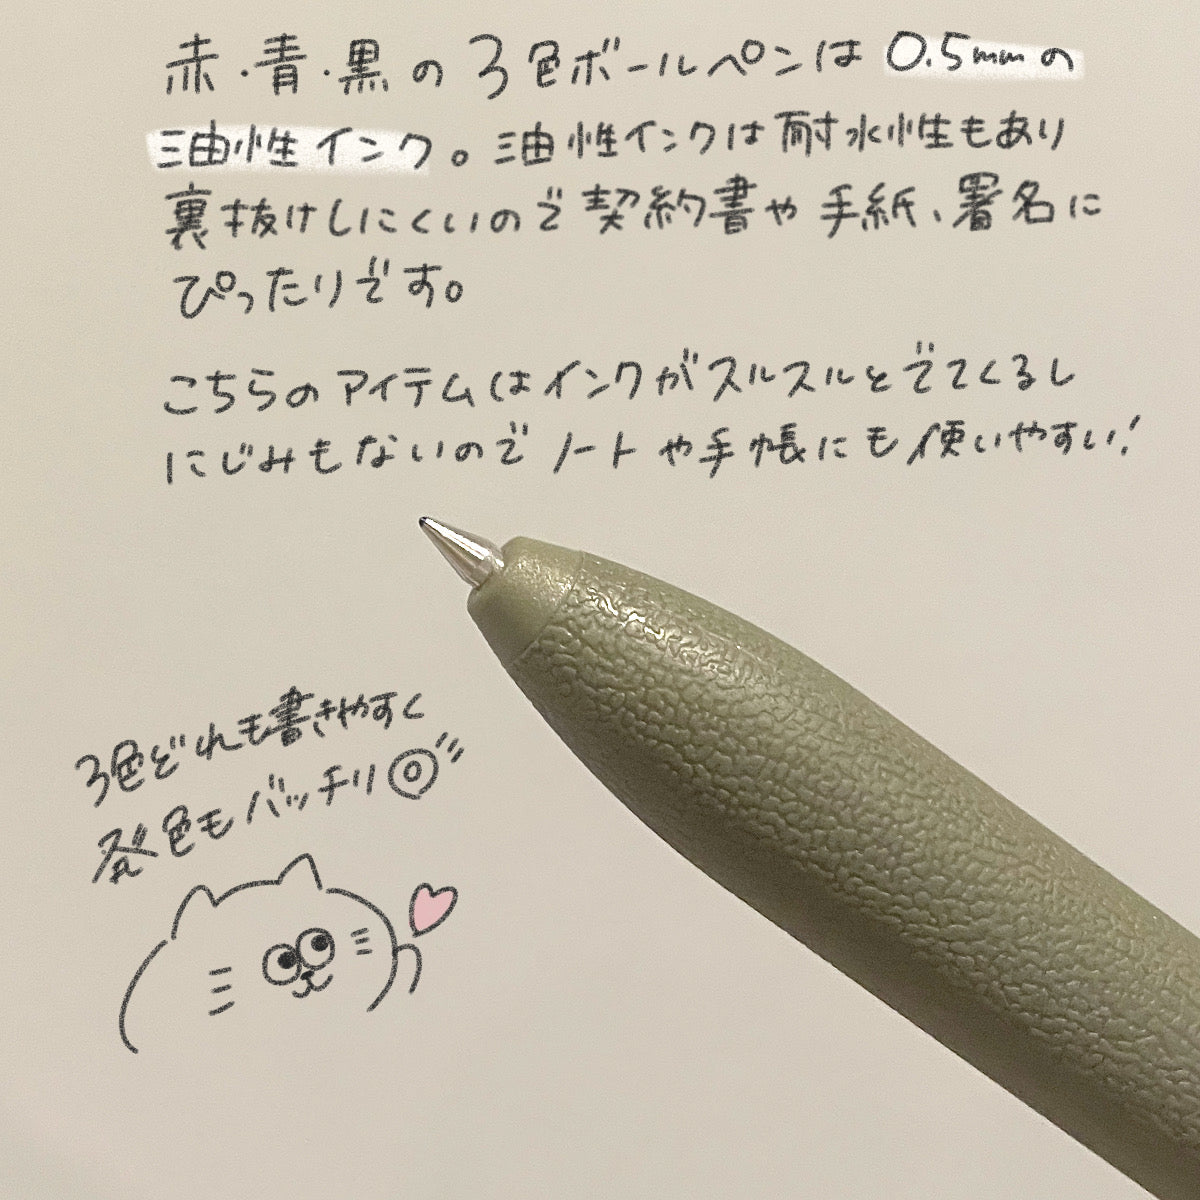 赤・青・黒の3色ボールペンは0.5mmの
油性インク。油性インクは耐水性もあり
裏抜けしにくいので契約書や手紙、署名に
ぴったりです。
こちらのアイテムはインクがスルスルとでてくるし
にじみもないのでノートや手帳にも使いやすい!
3色どれも書きやすく
発色もバッチリ◎